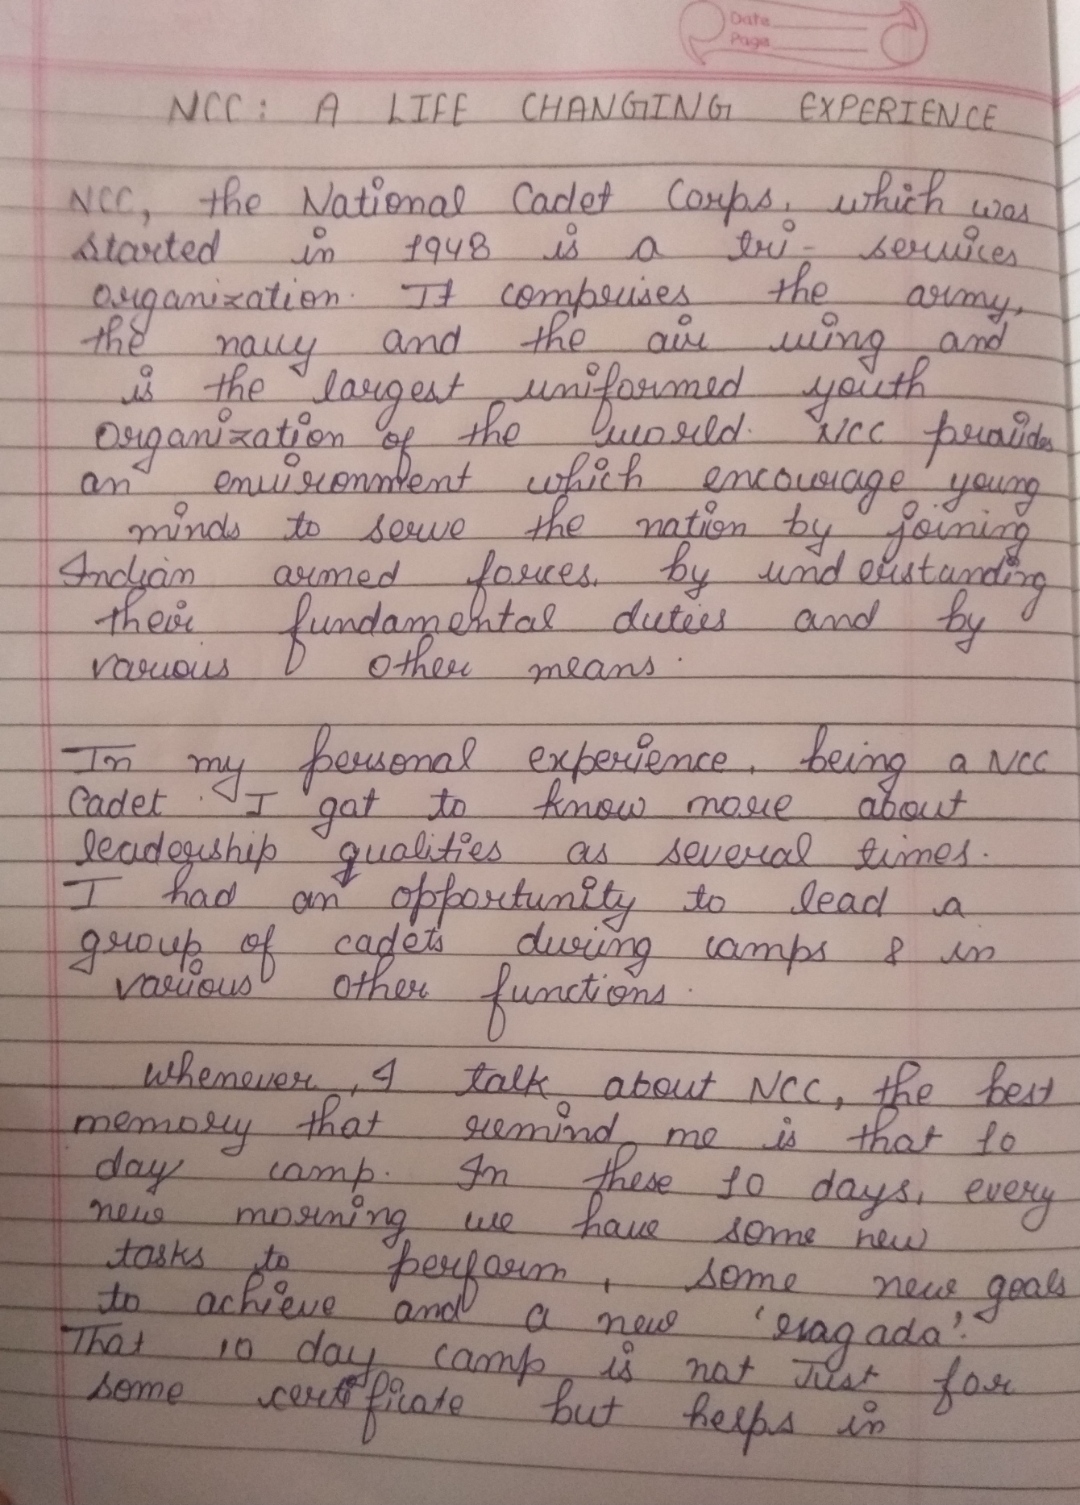 Date
Page
NCC: A LIFE CHANGING EXPERIENCE
NCC, the National Cadet Corps, which was
started in 1948 is a tri- services
organization. It comprises the army,
the navy and the air wing and
is the largest uniformed youth
organization of the world. NCC provides
an environment which encourage young
minds to serve the nation by joining
Indian armed forces, by understanding
their fundamental duties and by
various other means.
In my personal experience, being a NCC
Cadet. I got to know more about
leadership qualities as several times.
I had an opportunity to lead a
group of cadets during camps & in
various other functions.
Whenever, I talk about NCC, the best
memory that remind me is that 10
day camp. In these 10 days, every
new morning we have some new
tasks to perform, some new goals
to achieve and a new 'ragada'.
That 10 day camp is not Just for
some certificate but helps in